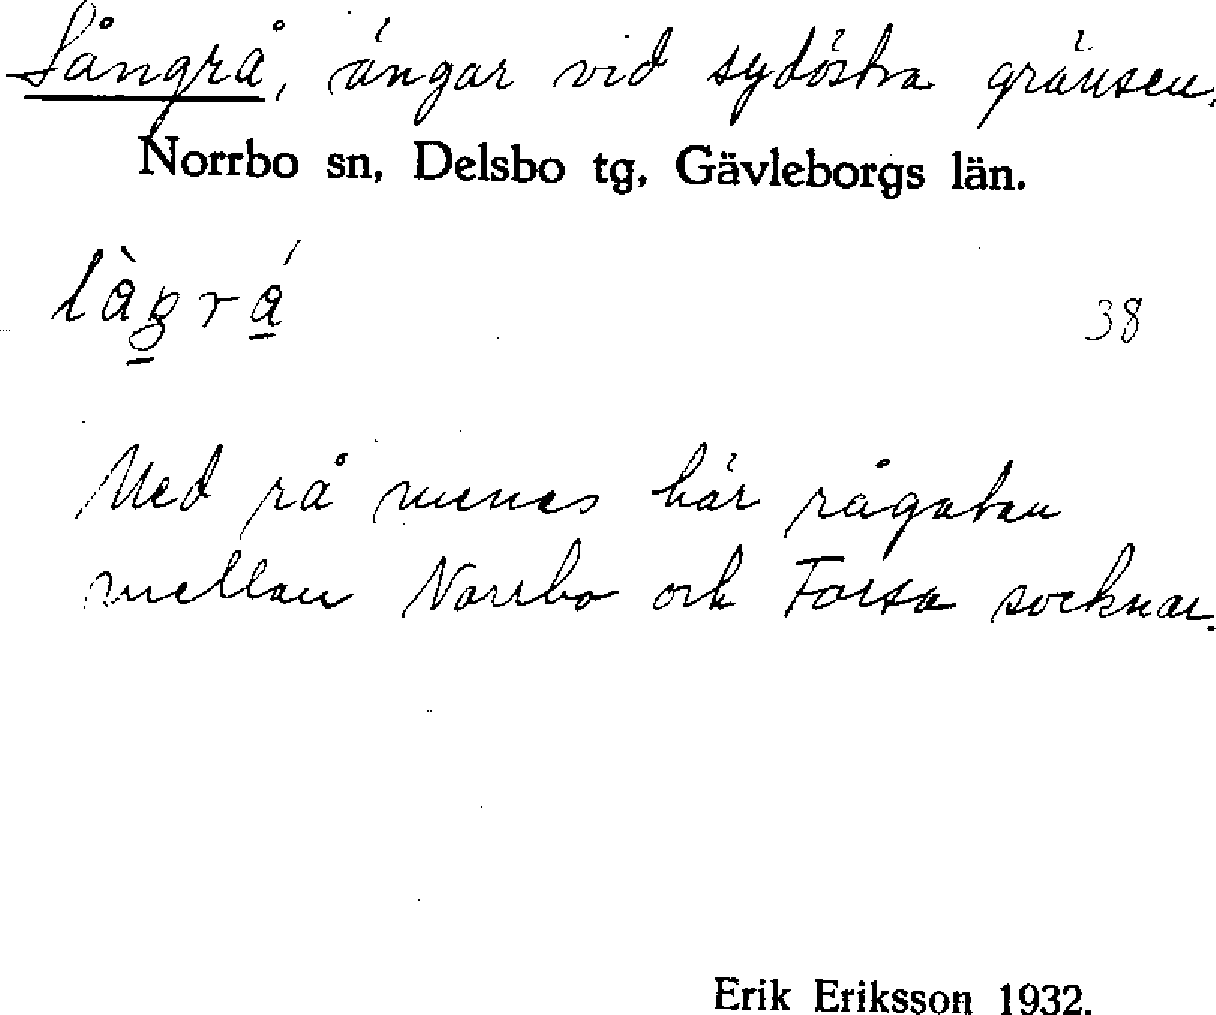 Långrå, ängar vid sydöstra gränsen.
Norrbo sn, Delsbo tg, Gävleborgs län.
38
Med rå menas här rågatan
mellan Norrbo och Forsa socknar.
Erik Eriksson 1932.